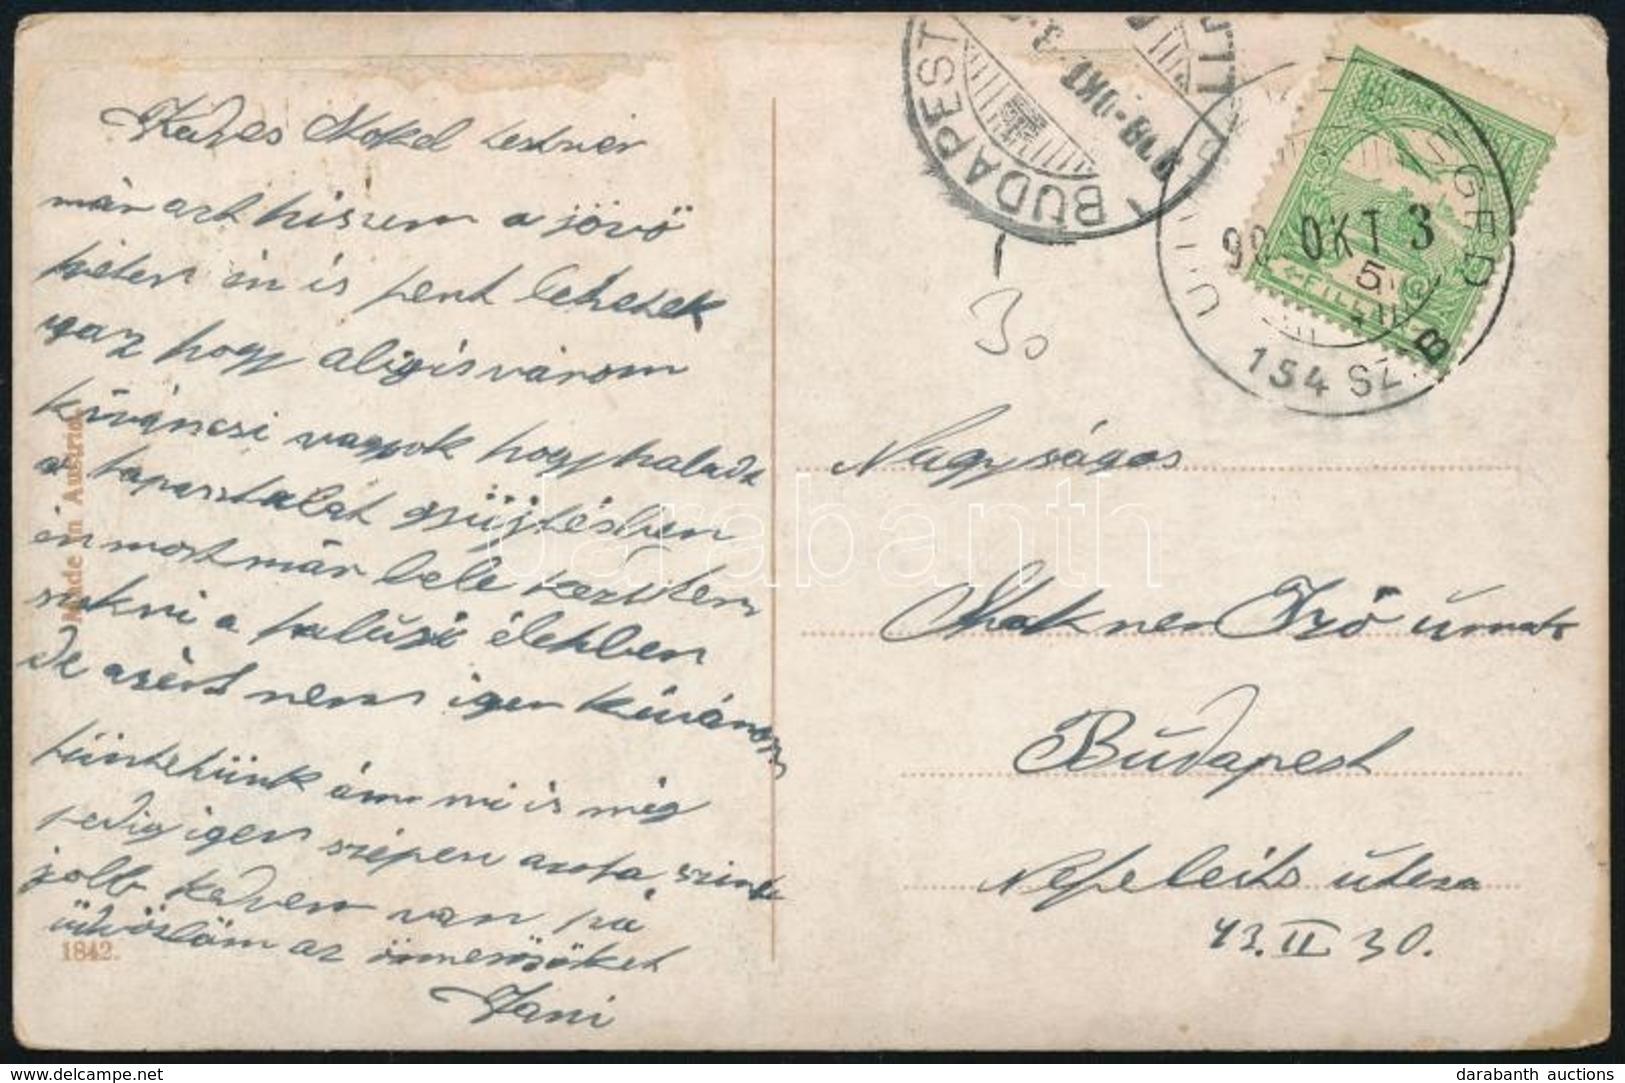 Kedves Mokel testvér
már azt hiszem a jövő
héten én is fent lehetek
igaz hogy alig is várom
kíváncsi vagyok hogy halad
a tapasztalat gyüjtésben
én most már bele kezdtem
sokni a falusi életben
de azért nem igen kívánom
tüntetünk ám mi is még
pedig igen szépen azóta szinte
jobb kedvem van pá
üdvözlöm az ismerősöket
Jani
Made in Austria.
1842.
BUDAPEST
919 OKT 3
SZEGED
90 OKT 3
5
154 SZ. B
MAGYAR KIR. POSTA
FILLÉR
30
Nagyságos
Izsó úrnak
Budapest
Nefelejts útcza
43. II 30.
darabanth
delcampe.net
darabanth auctions